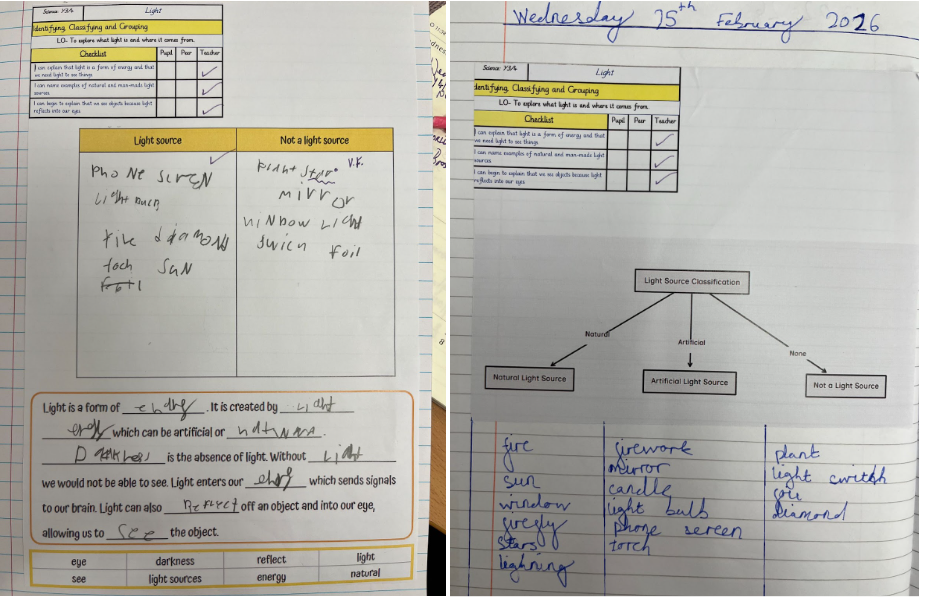 Science Y3/4 Light
Identifying, Classifying and Grouping
LO- To explore what light is and where it comes from.
Checklist Pupil Peer Teacher
I can explain that light is a form of energy and that
we need light to see things.
I can name examples of natural and man-made light
sources.
I can begin to explain that we see objects because light
reflects into our eyes
Light source
Not a light source
V.F.
mirror
foil
fire diamond
toch SuN
Light is a form of . It is created by Light
which can be artificial or .
is the absence of light. Without Light
we would not be able to see. Light enters our which sends signals
to our brain. Light can also Reflect off an object and into our eye,
allowing us to See the object.
eye darkness reflect light
see light sources energy natural
Wednesday 25th February 2026
Science Y3/4 Light
Identifying, Classifying and Grouping
LO- To explore what light is and where it comes from.
Checklist Pupil Peer Teacher
I can explain that light is a form of energy and that
we need light to see things.
I can name examples of natural and man-made light
sources.
I can begin to explain that we see objects because light
reflects into our eyes
Light Source Classification
Natural
Artificial
None
Natural Light Source
Artificial Light Source
Not a Light Source
fire
sun
window
stars
firework
mirror
candle
light bulb
phone screen
torch
plant
light
diamond